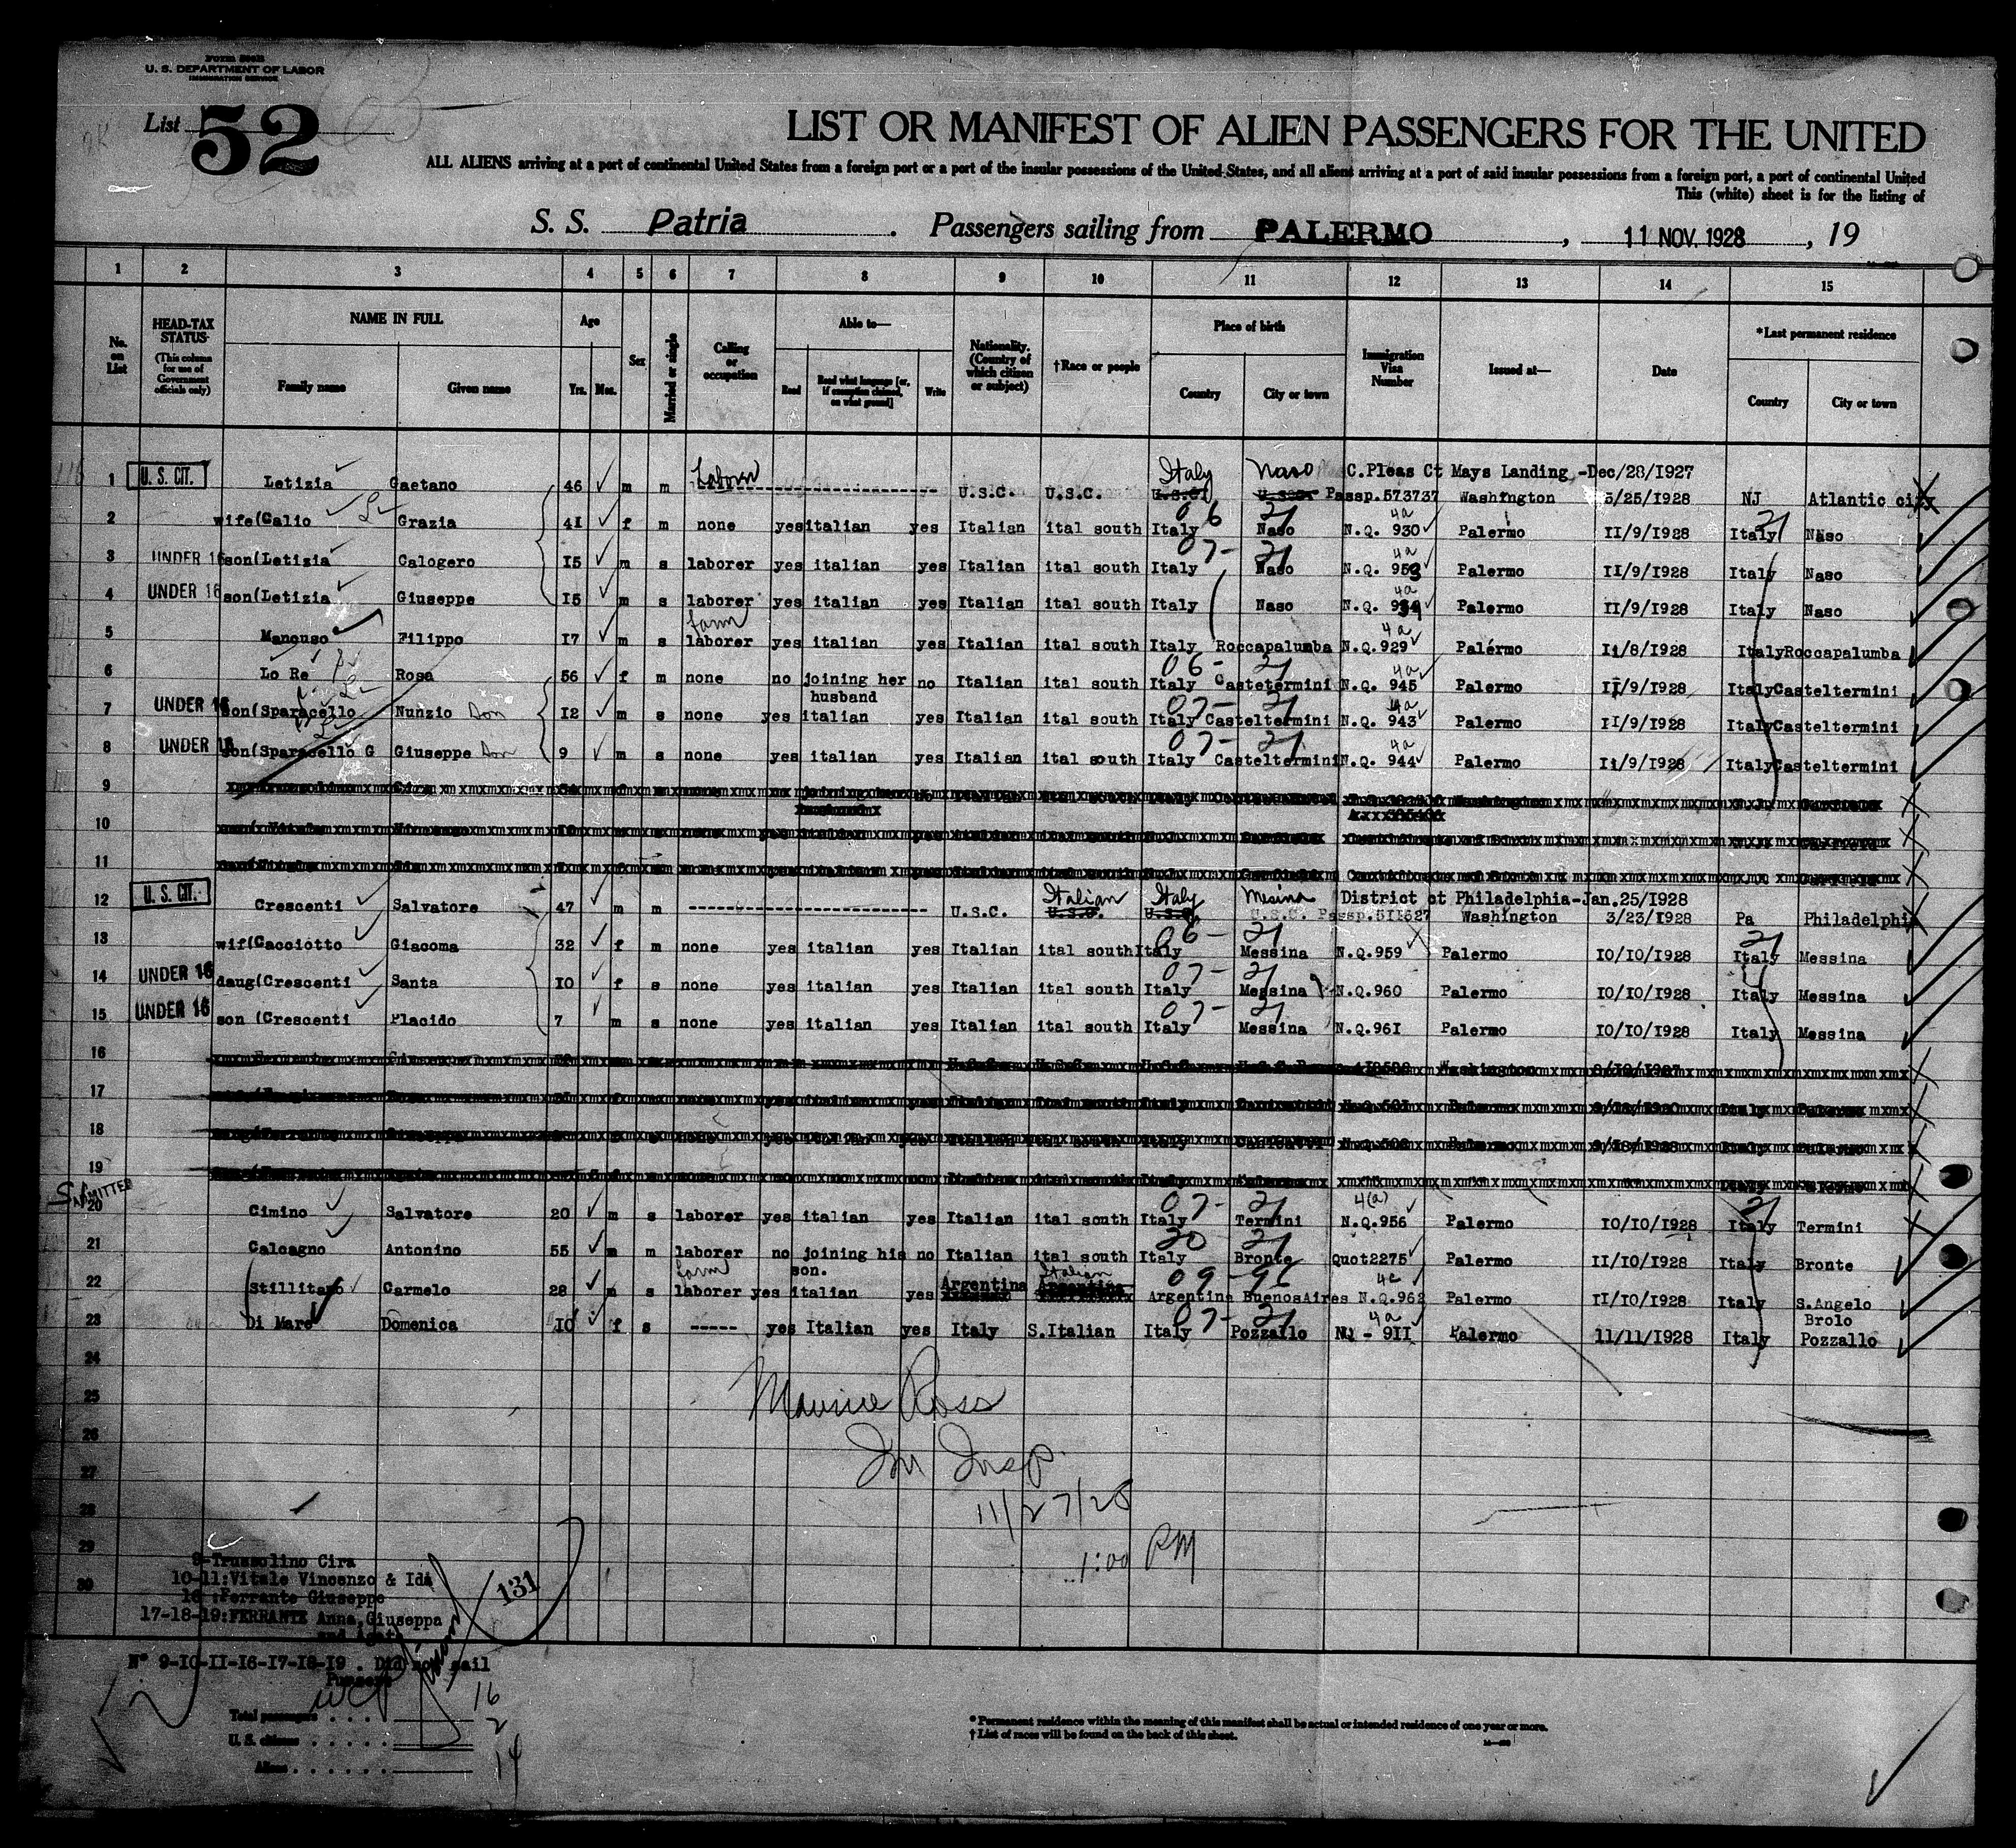 Form 500B
U. S. DEPARTMENT OF LABOR
IMMIGRATION SERVICE
List 52
LIST OR MANIFEST OF ALIEN PASSENGERS FOR THE UNITED
ALL ALIENS arriving at a port of continental United States from a foreign port or a port of the insular possessions of the United States, and all aliens arriving at a port of said insular possessions from a foreign port, a port of continental United
This (white) sheet is for the listing of
S. S. Patria. Passengers sailing from PALERMO, 11 NOV. 1928, 19
1 2 3 4 5 6 7 8 9 10 11 12 13 14 15
No. on List
HEAD-TAX STATUS (This column for use of Government officials only)
NAME IN FULL Family name Given name
Age Yrs. Mos.
Sex
Married or single
Calling or occupation
Able to— Read Read what language [or, if exemption claimed, on what ground] Write
Nationality. (Country of which citizen or subject)
†Race or people
Place of birth Country City or town
Immigration Visa Number
Issued at—
Date
*Last permanent residence Country City or town
1 U. S. CIT. Letizia Gaetano 46 m m Laborer U.S.C. U.S.C. Italy U.S.C. Naso C.Pleas Ct Mays Landing -Dec/28/1927
Passp.573737 Washington 3/25/1928 NJ Atlantic city
2 wife(Calio Grazia 41 f m none yes italian yes Italian ital south Italy 06 21 Naso N.Q. 930 4a Palermo 11/9/1928 Italy 21 Naso
3 UNDER 16 son(Letizia Calogero 15 m s laborer yes italian yes Italian ital south Italy 07- 21 Naso N.Q. 953 4a Palermo 11/9/1928 Italy Naso
4 UNDER 16 son(Letizia Giuseppe 15 m s laborer yes italian yes Italian ital south Italy Naso N.Q. 4a Palermo 11/9/1928 Italy Naso
5 Mancuso Filippo 17 m s farm laborer yes italian yes Italian ital south Italy Roccapalumba N.Q.929 4a Palermo 11/8/1928 Italy Roccapalumba
6 Lo Re Rosa 56 f m none no joining her husband no Italian ital south Italy 06- 21 Castetermini N.Q. 945 4a Palermo 11/9/1928 Italy Casteltermini
7 UNDER 16 son(Sparacello Nunzio Son 12 m s none yes italian yes Italian ital south Italy 07- 21 Casteltermini N.Q. 943 4a Palermo 11/9/1928 Italy Casteltermini
8 UNDER 16 son(Sparacello G Giuseppe Son 9 m s none yes italian yes Italian ital south Italy 07- 21 Casteltermini N.Q. 944 4a Palermo 11/9/1928 Italy Casteltermini
9
10
11
12 U. S. CIT. Crescenti Salvatore 47 m m U.S.C. Italian U.S.C. Italy U.S.C. Mesina District ct Philadelphia-Jan.25/1928
U.S.C. Passp.511627 Washington 3/23/1928 Pa Philadelphia
13 wif(Cacciotto Giacoma 32 f m none yes italian yes Italian ital south Italy 06- 21 Messina N.Q.959 Palermo 10/10/1928 Italy 21 Messina
14 UNDER 16 daug(Crescenti Santa 10 f s none yes italian yes Italian ital south Italy 07- 21 Messina N.Q.960 Palermo 10/10/1928 Italy Messina
15 UNDER 16 son (Crescenti Placido 7 m s none yes italian yes Italian ital south Italy 07- 21 Messina N.Q.961 Palermo 10/10/1928 Italy Messina
16
17
18
19
ADMITTED
20 Cimino Salvatore 20 m s laborer yes italian yes Italian ital south Italy 07- 21 Termini N.Q.956 4(a) Palermo 10/10/1928 Italy 21 Termini
21 Calcagno Antonino 55 m m laborer no joining his son. no Italian ital south Italy 30 21 Bronte Quot2275 Palermo 11/10/1928 Italy Bronte
22 Stillitano Carmelo 28 m s farm laborer yes italian yes Argentina Italian Argentina 09 Buenos Aires N.Q.962 4c Palermo 11/10/1928 Italy S.Angelo Brolo
23 Di Marc Domenica 10 f s ----- yes Italian yes Italy S.Italian Italy 07- 21 Pozzallo NQ - 911 4a Palermo 11/11/1928 Italy Pozzallo
24
25
26
27
28
29
30
Maurice Ross
Im Insp.
11/27/28
1:00 PM
9-Trussolino Cira
10-11:Vitale Vincenzo & Ida
16 :Ferrante Giuseppe
17-18-19:FERRANTE Anna,Giuseppa
and Agata
131
N° 9-10-11-16-17-18-19 . Did not sail
Pursers
Total passengers . . . . 16
U. S. citizens . . . . . . 2
Aliens . . . . . . 14
* Permanent residence within the meaning of this manifest shall be actual or intended residence of one year or more.
† List of races will be found on the back of this sheet.